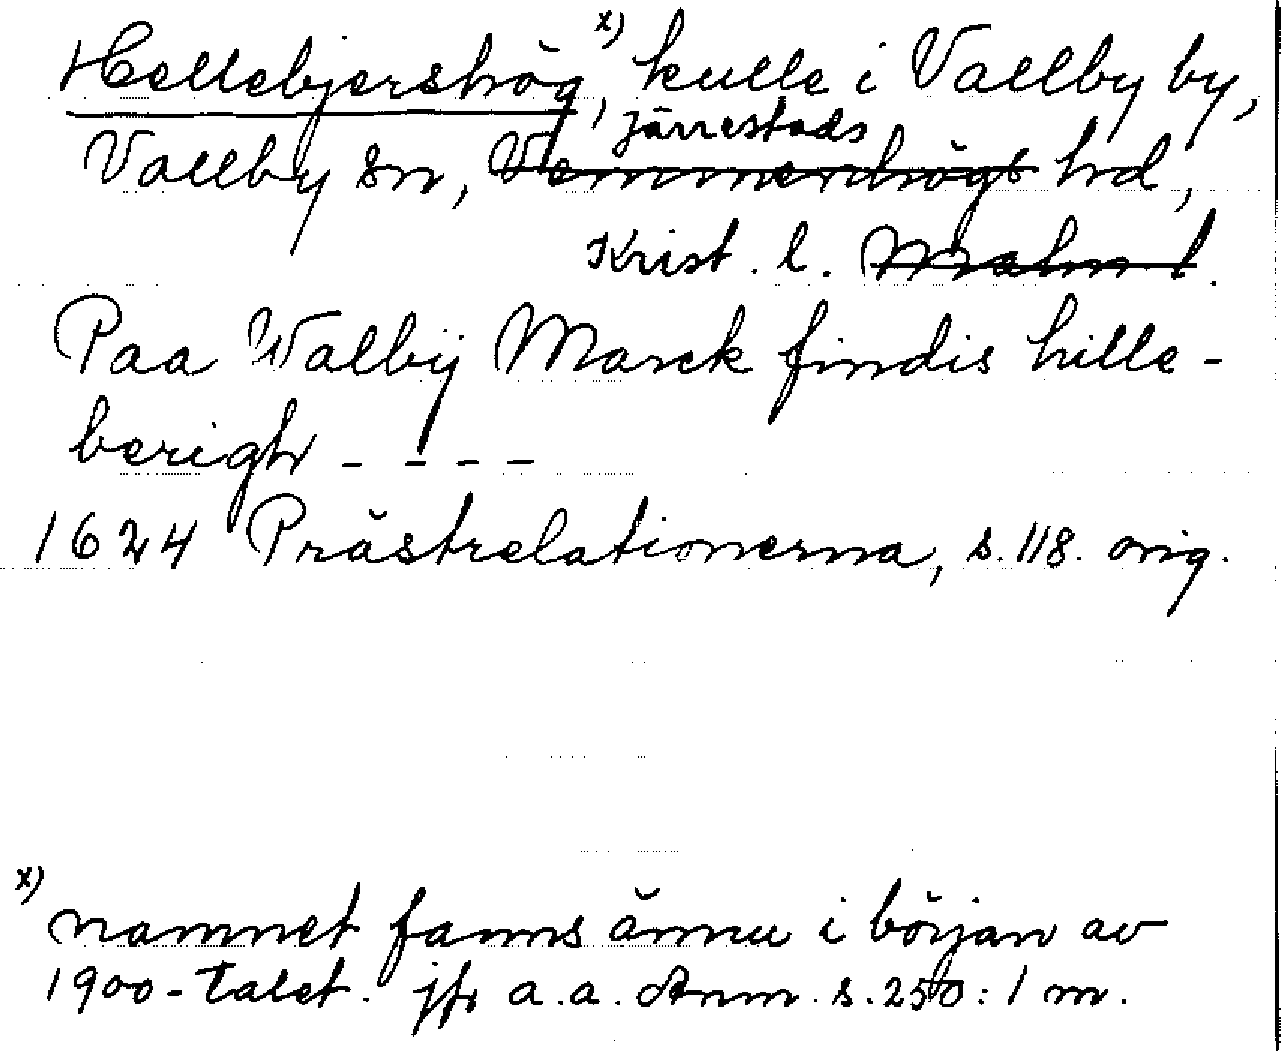 Hellebjershög, x) kulle i Vallby by,
Järrestads
Vallby sn, Vemmenhögs hd,
Krist. l. Malm l.
Paa Walbÿ Marck findis hille-
berigh - - - -
1624 Prästrelationerna, s. 118. orig.
x)
namnet fanns ännu i början av
1900-talet. jfr a.a. Anm. s. 250: 1 m.